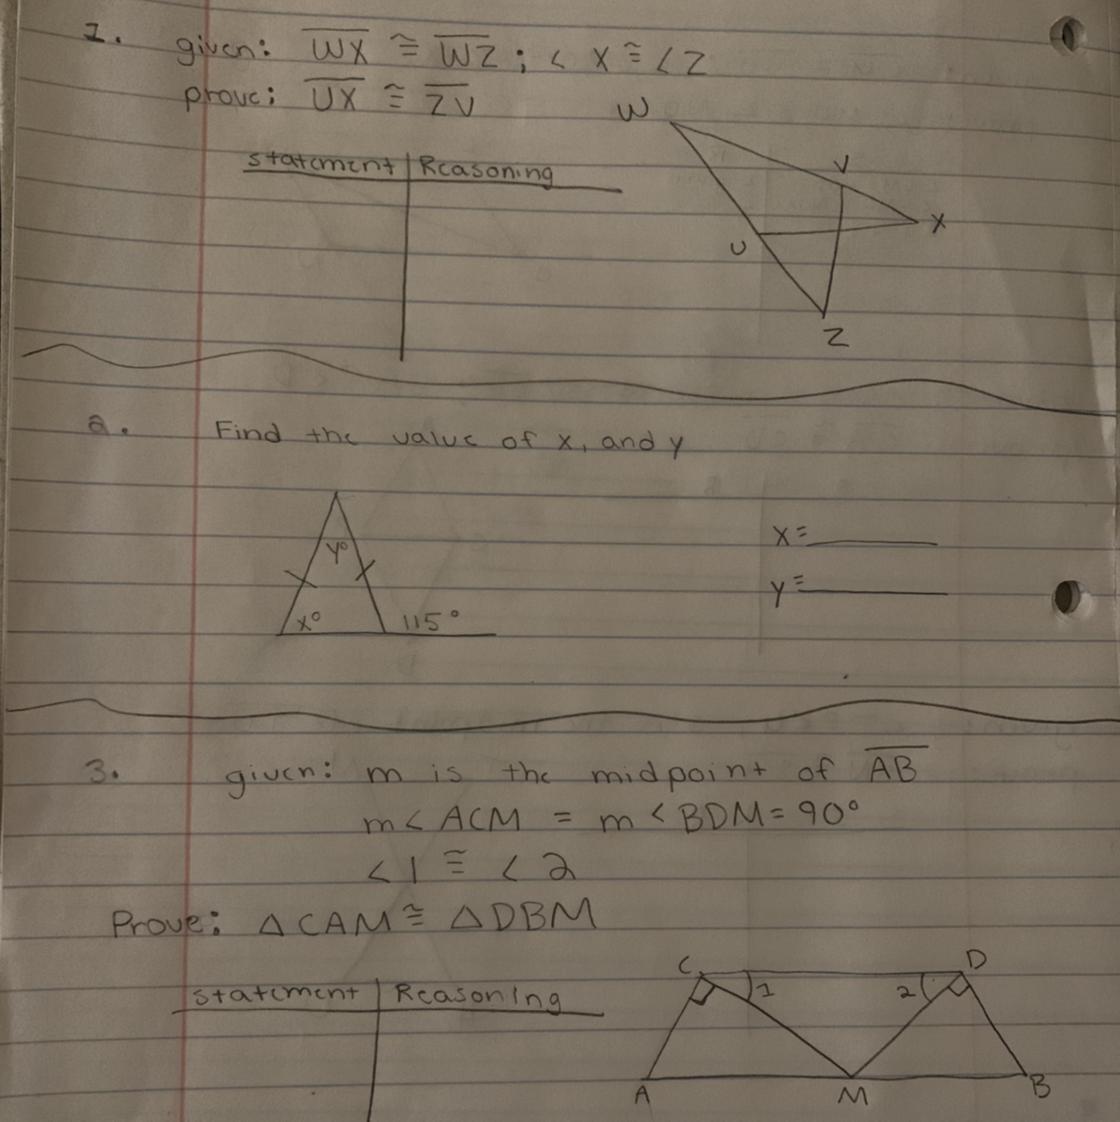 1. given: WX ≅ WZ ; < X ≅ < Z
prove: UX ≅ ZV
W
statement Reasoning
V
X
U
Z
2. Find the value of x, and y
y°
x=
y=
x° 115°
3. given: m is the midpoint of AB
m< ACM = m <BDM = 90°
< 1 ≅ < 2
Prove: △CAM ≅ △DBM
C D
statement Reasoning
1 2
A M B